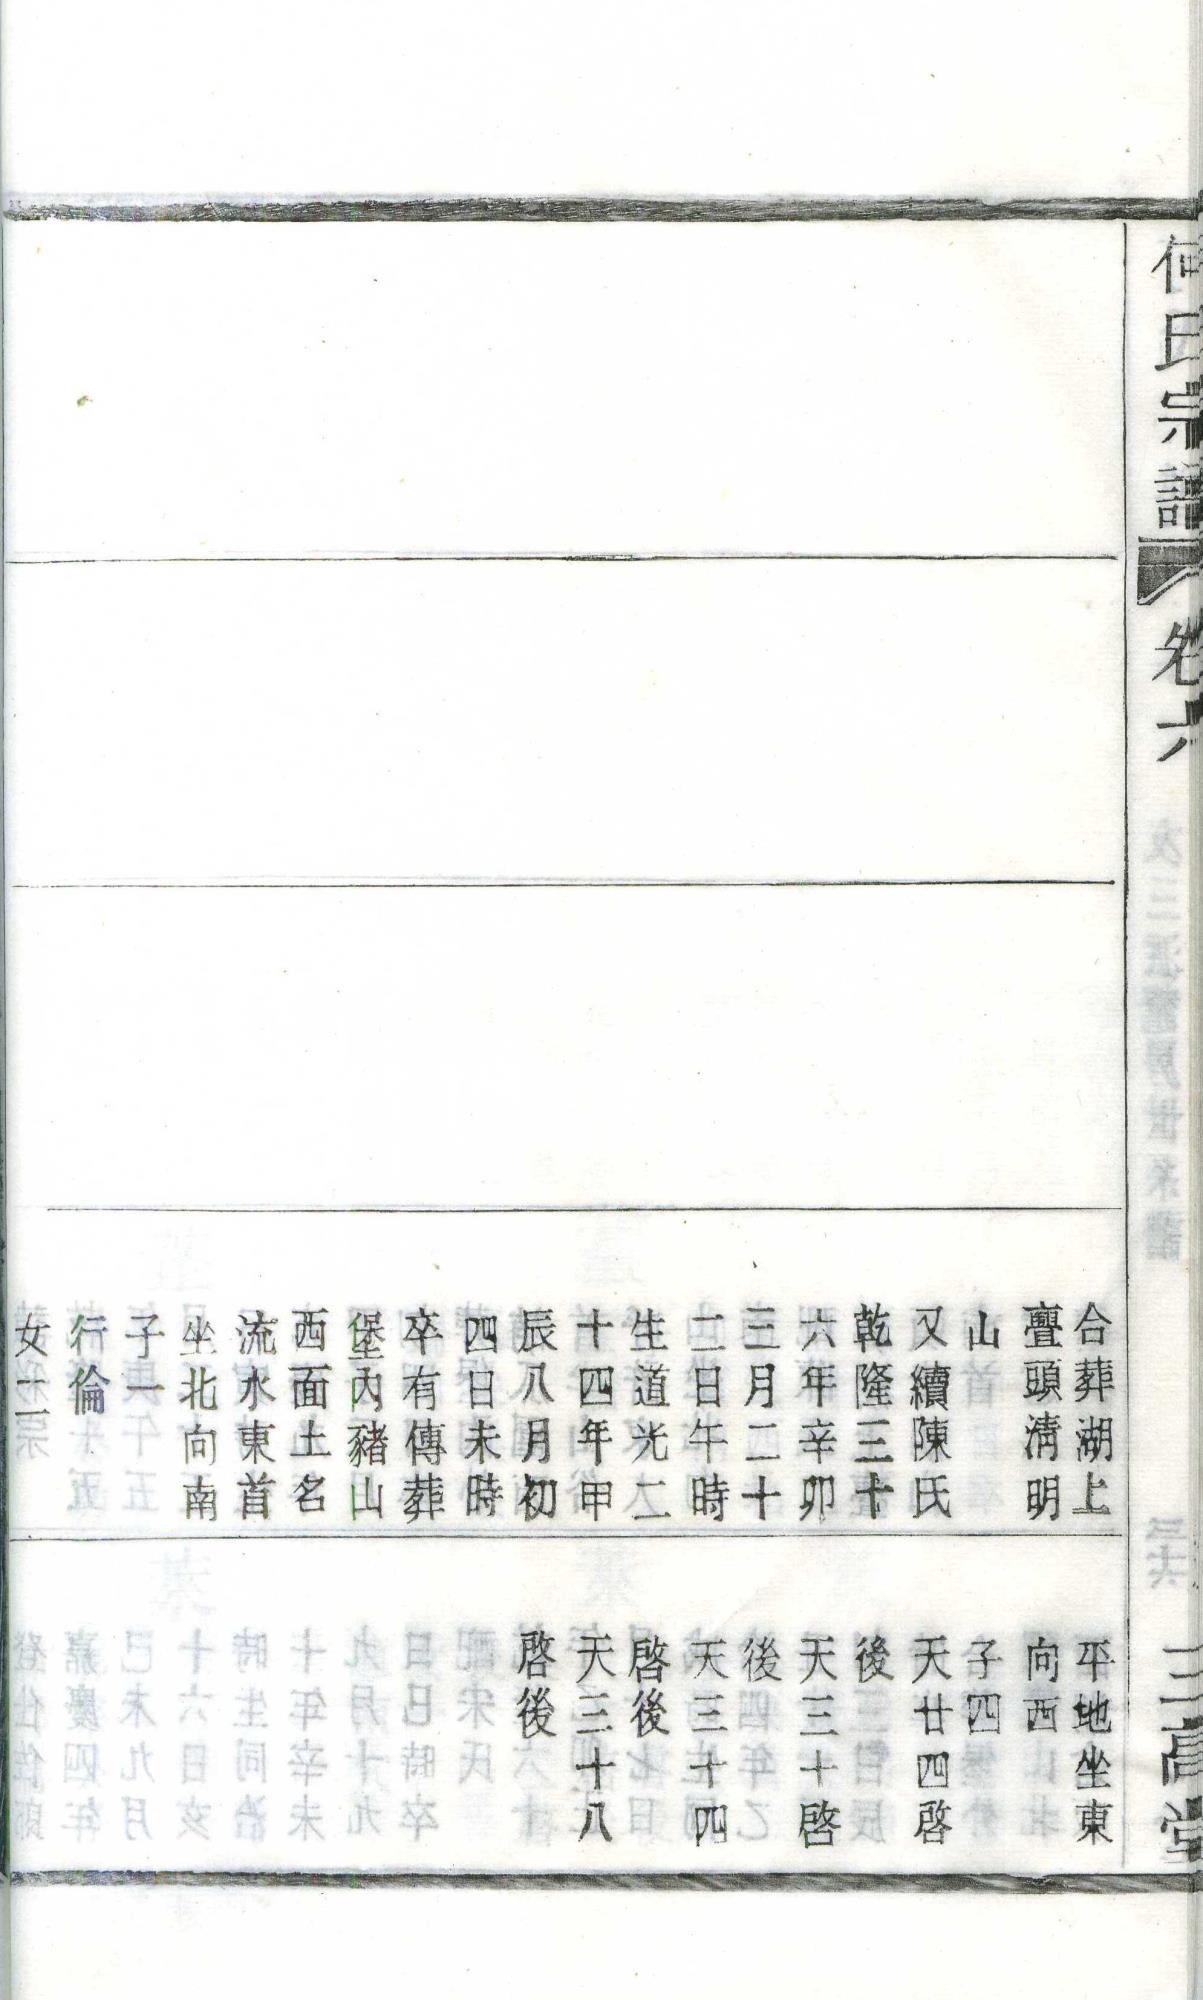 何氏宗譜
卷六
三高堂
合葬湖上
疊頭淸明
山
又續陳氏
乾隆三十
六年辛卯
三月二十
二日午時
生道光二
十四年甲
辰八月初
四日未時
卒有傳葬
堡內豬山
西面土名
流水東首
坐北向南
子一
行倫
女二
平地坐東
向西
子四
天廿四啓
後
天三十啓
後
天三十四
啓後
天三十八
啓後